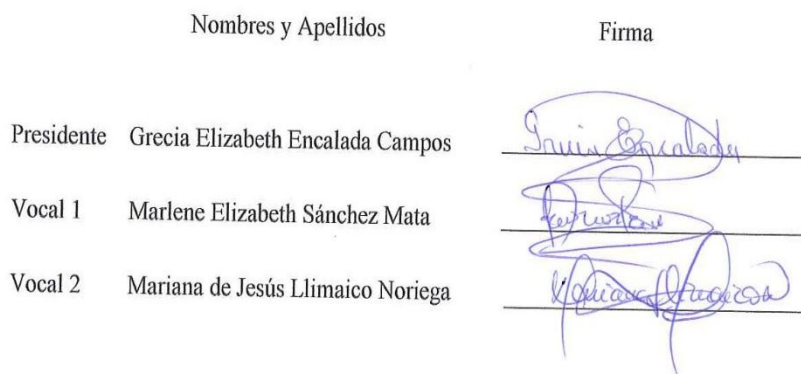 Nombres y Apellidos Firma
Presidente Grecia Elizabeth Encalada Campos Grecia Encalada
Vocal 1 Marlene Elizabeth Sánchez Mata
Vocal 2 Mariana de Jesús Llimaico Noriega Mariana Llimaico N